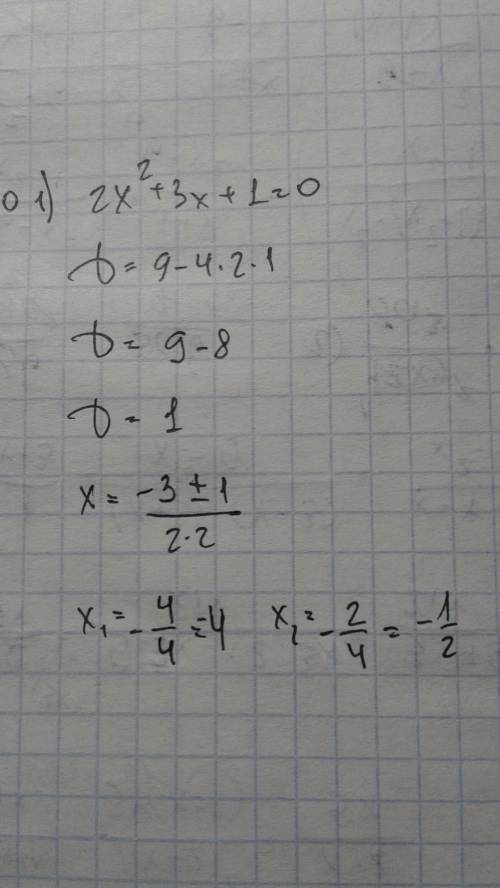 0 1) 2x²+3x+1=0
D=9-4·2·1
D=9-8
D=1
x=\frac{-3±1}{2·2}
x₁=-\frac{4}{4}=-4 x₂=-\frac{2}{4}=-\frac{1}{2}